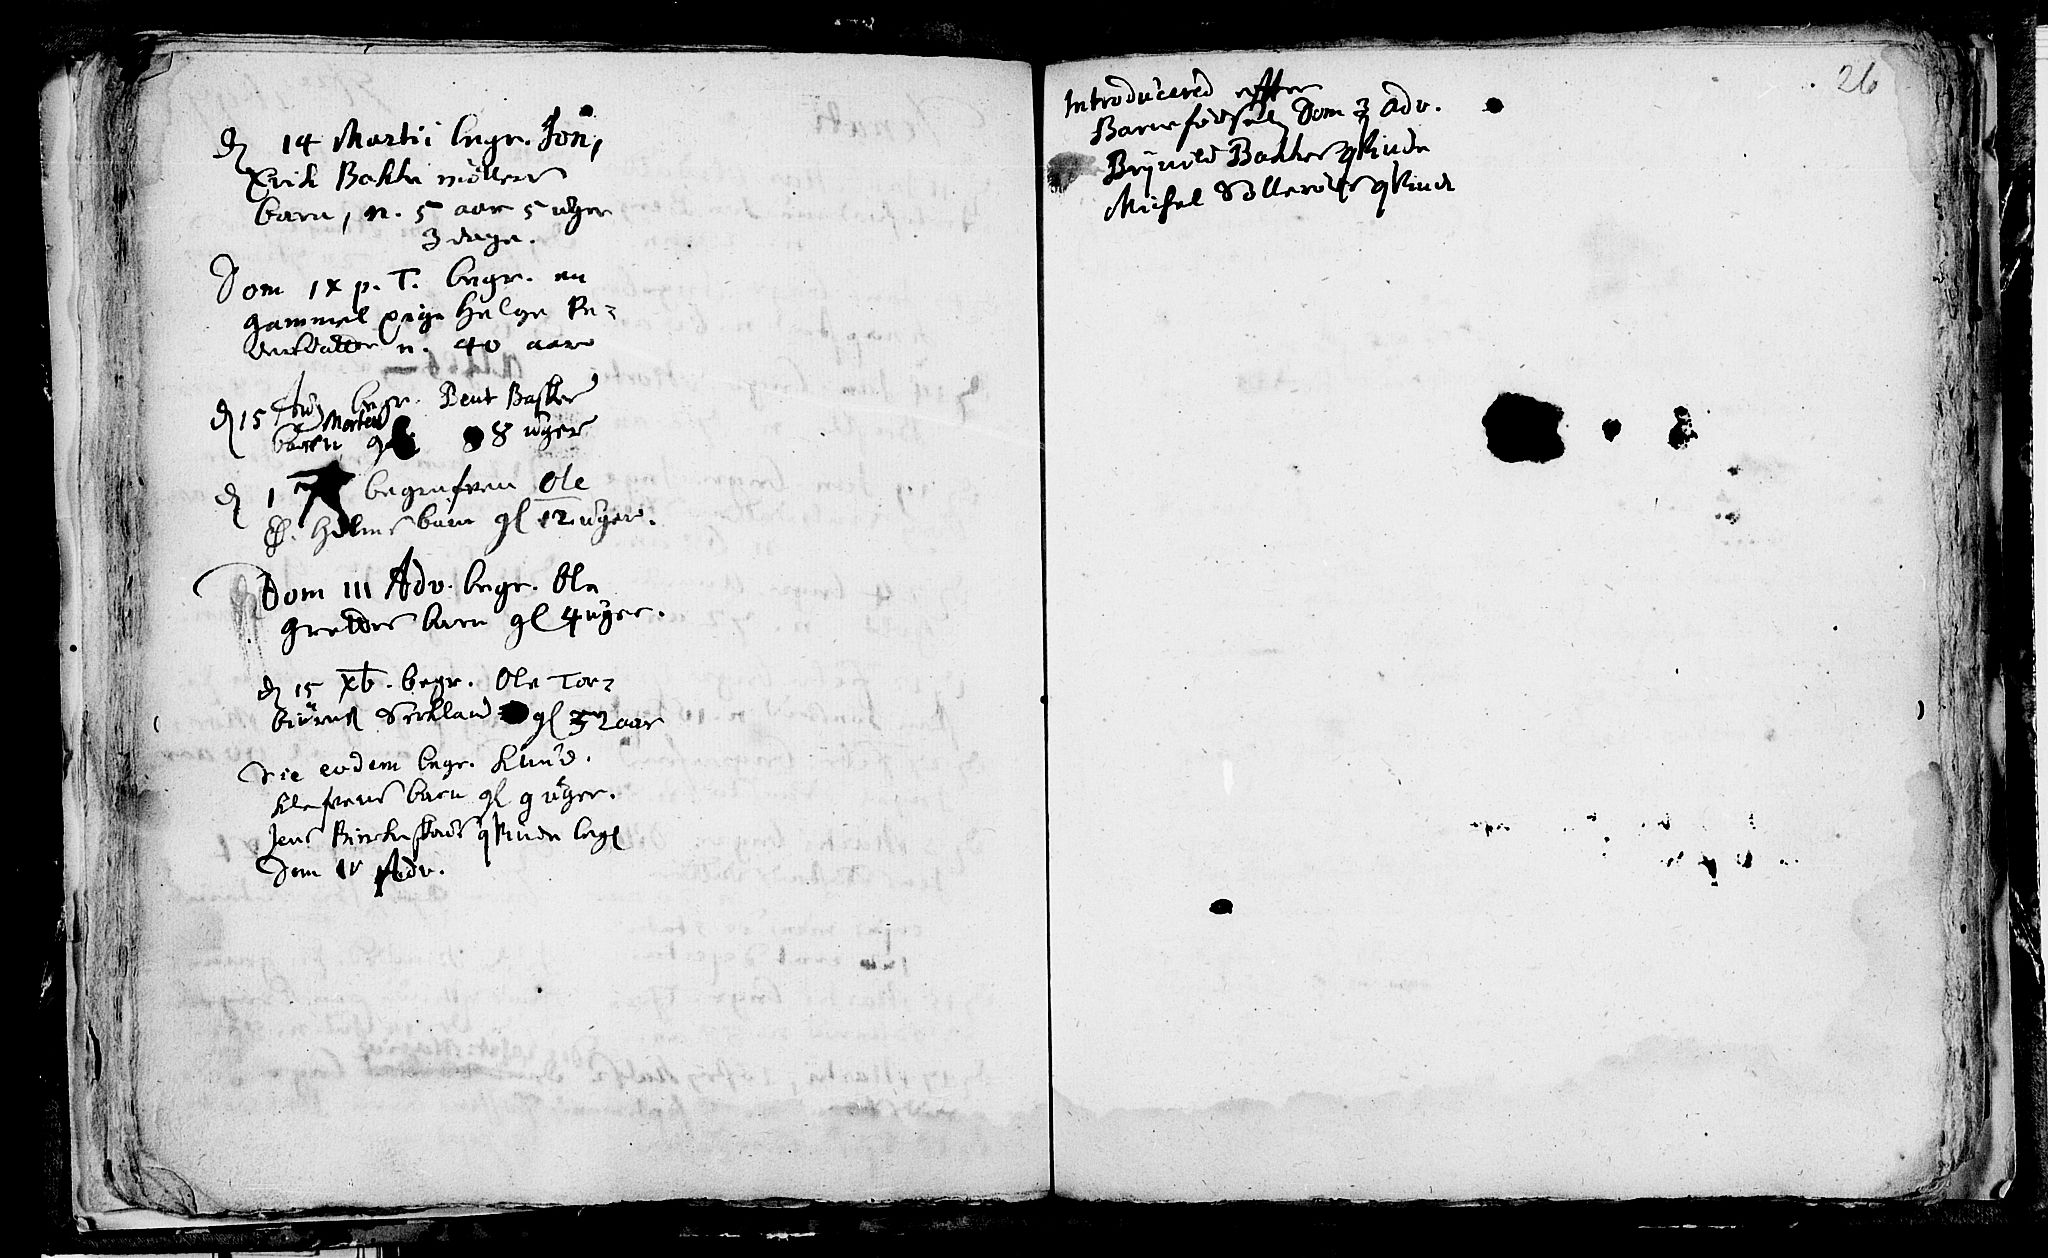 D 14 Martii begr. Jon,
Erik Bakke möllers
barn, n. 5 aar 5 uger
3 dage.
Dom IX p. T. begr. en
gammel pige Helge
n. 40 aar
D 15 begr. Bent Basker
barn Morten 8 uger
D 1 begrafven Ole
Holms barn gl 12 uger.
Dom III Adv. begr. Ole
barn gl 4 uger.
D 15 Xb. begr. Ole Tor-
biörns gl 32 aar
Die eodem begr. Knud
barn gl 9 uger.
Jens qvinde begr
Dom IV Adv.
26
Introducered effter
Barnefödsel Dom 3 Adv.
Brÿnild Bakkes qvinde
Michel Sölleröds qvinde